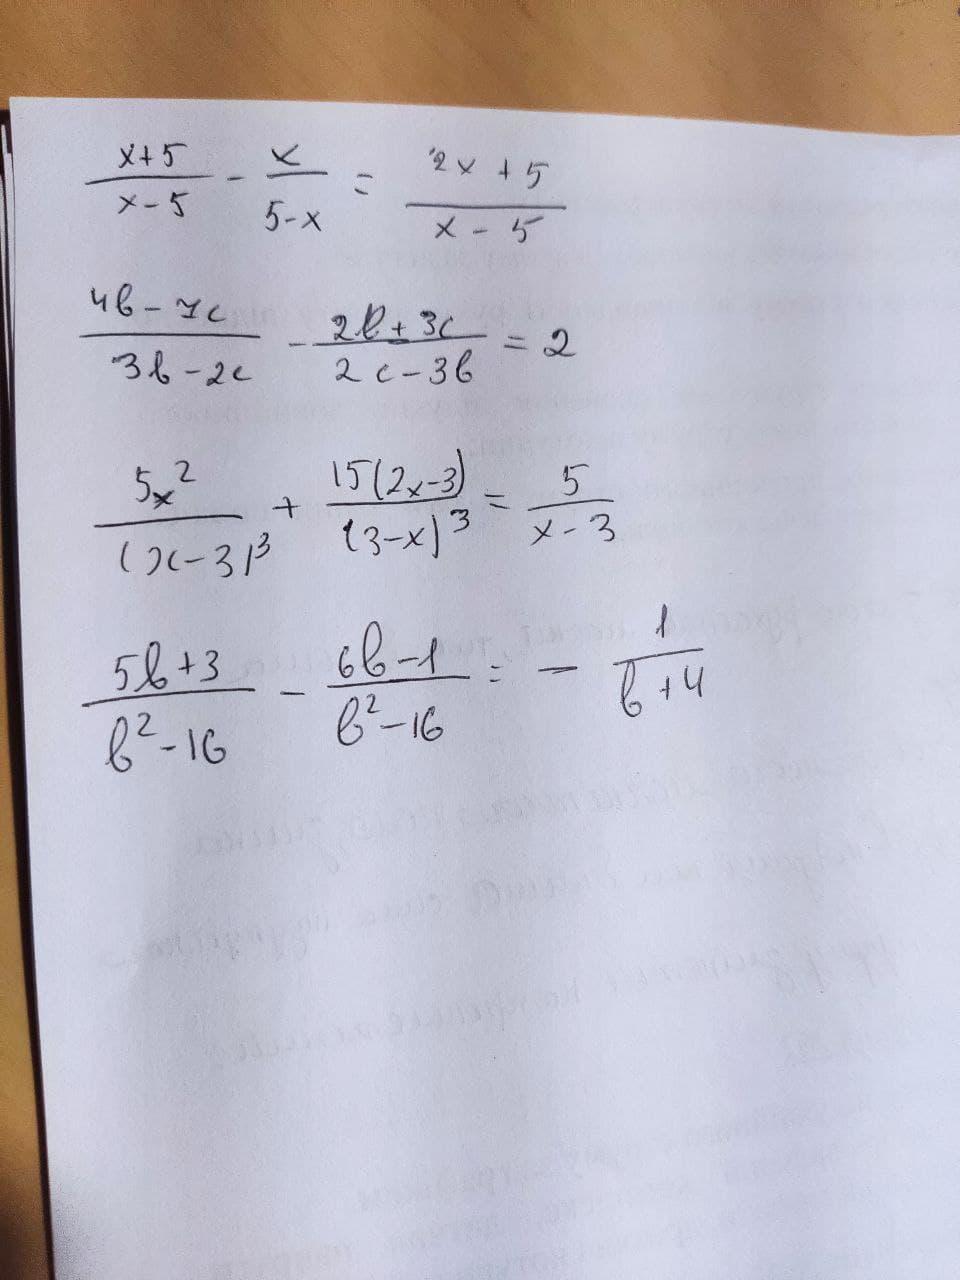 (x+5)/(x-5) - x/(5-x) = (2x+5)/(x-5)
(4b-7c)/(3b-2c) - (2b+3c)/(2c-3b) = 2
5x²/(x-3)³ + 15(2x-3)/(3-x)³ = 5/(x-3)
(5b+3)/(b²-16) - (6b-1)/(b²-16) = - 1/(b+4)